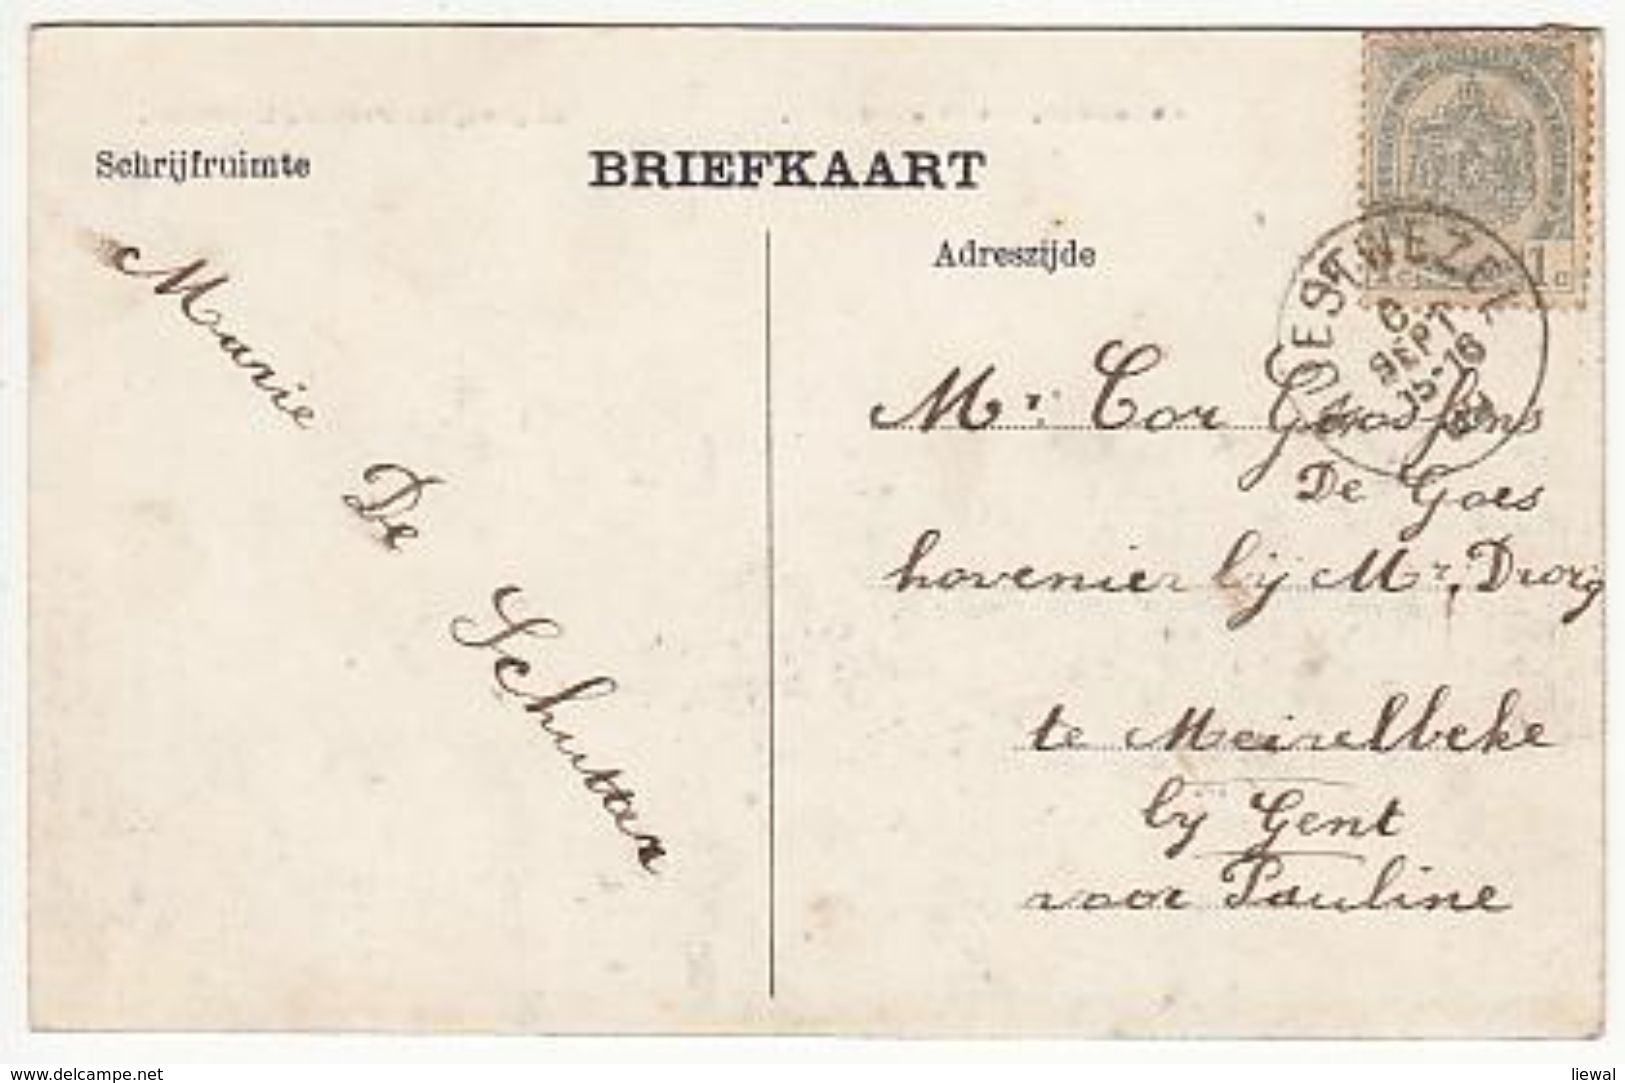 Schrijfruimte
BRIEFKAART
Adreszijde
1 c
WESTWEZEL
6
SEPT
15-16
Marie
De
Schutter
Mr. Cor
De Goes
hovenier bij Mr.
te Meirelbeke
bij Gent
voor Pauline
www.delcampe.net
liewal